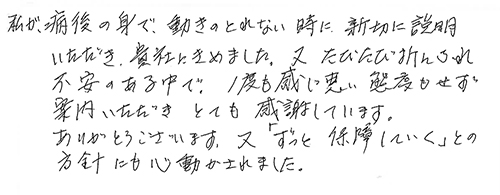 私が、病後の身で、動きのとれない時に、親切に説明
いただき、貴社にきめました。又 たびたび 折んされ
不安のある中で、1度も感じ悪い 態度もせず
案内いただき とても 感謝しています。
ありがとうございます。又「ずっと 保障していく」との
方針にも心動かされました。